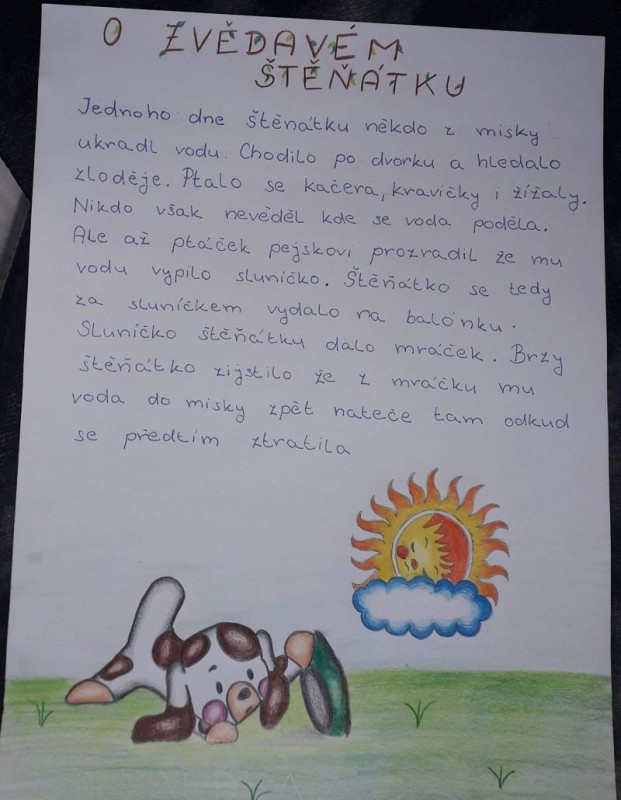 O ZVĚDAVÉM
ŠTĚŇÁTKU
Jednoho dne štěnátku někdo z misky
ukradl vodu. Chodilo po dvorku a hledalo
zloděje. Ptalo se kačera, kravičky i žížaly.
Nikdo však nevěděl kde se voda poděla.
Ale až ptáček pejskovi prozradil že mu
vodu vypilo sluníčko. Štěňátko se tedy
za sluníčkem vydalo na balónku.
Sluníčko štěňátku dalo mráček. Brzy
štěňátko zijstilo že z mráčku mu
voda do misky zpět nateče tam odkud
se předtím ztratila